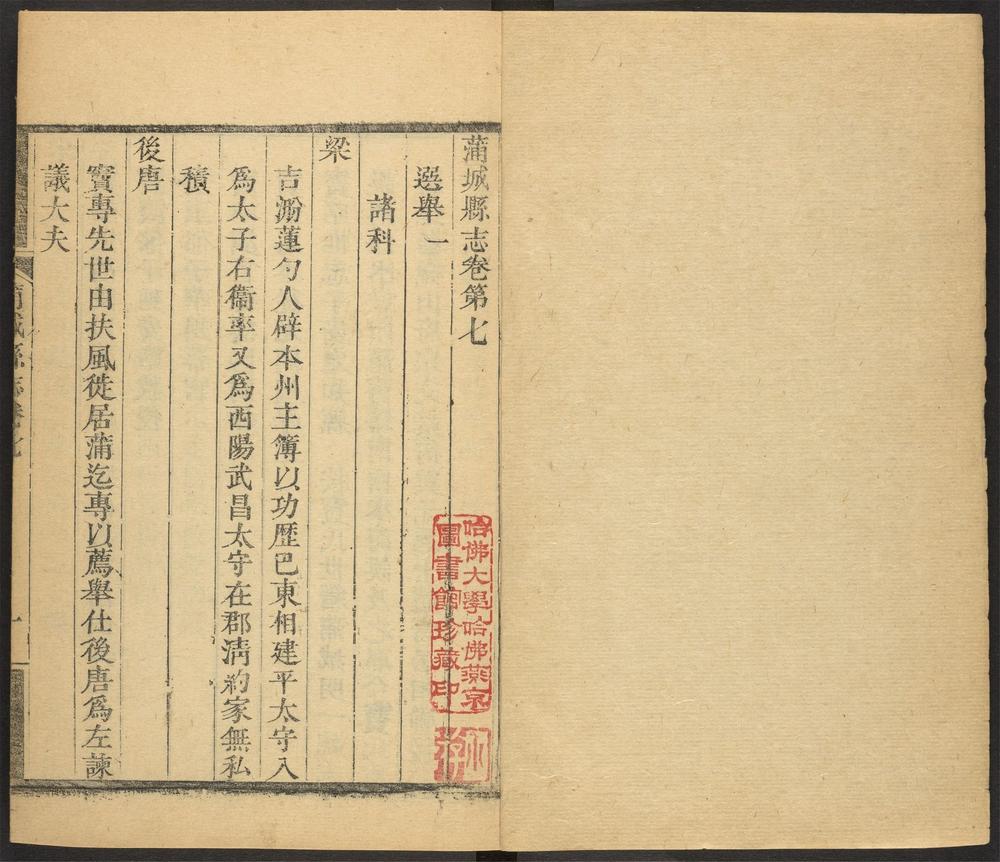 蒲城縣志卷第七
選舉一
諸科
梁
吉瀚蓮勺人辟本州主簿以功歷巴東相建平太守入
爲太子右衞率又爲西陽武昌太守在郡淸約家無私
積
後唐
竇專先世由扶風徙居蒲迄專以薦舉仕後唐爲左諫
議大夫
蒲城縣志卷七
一
哈佛大學哈佛燕京
圖書館珍藏印